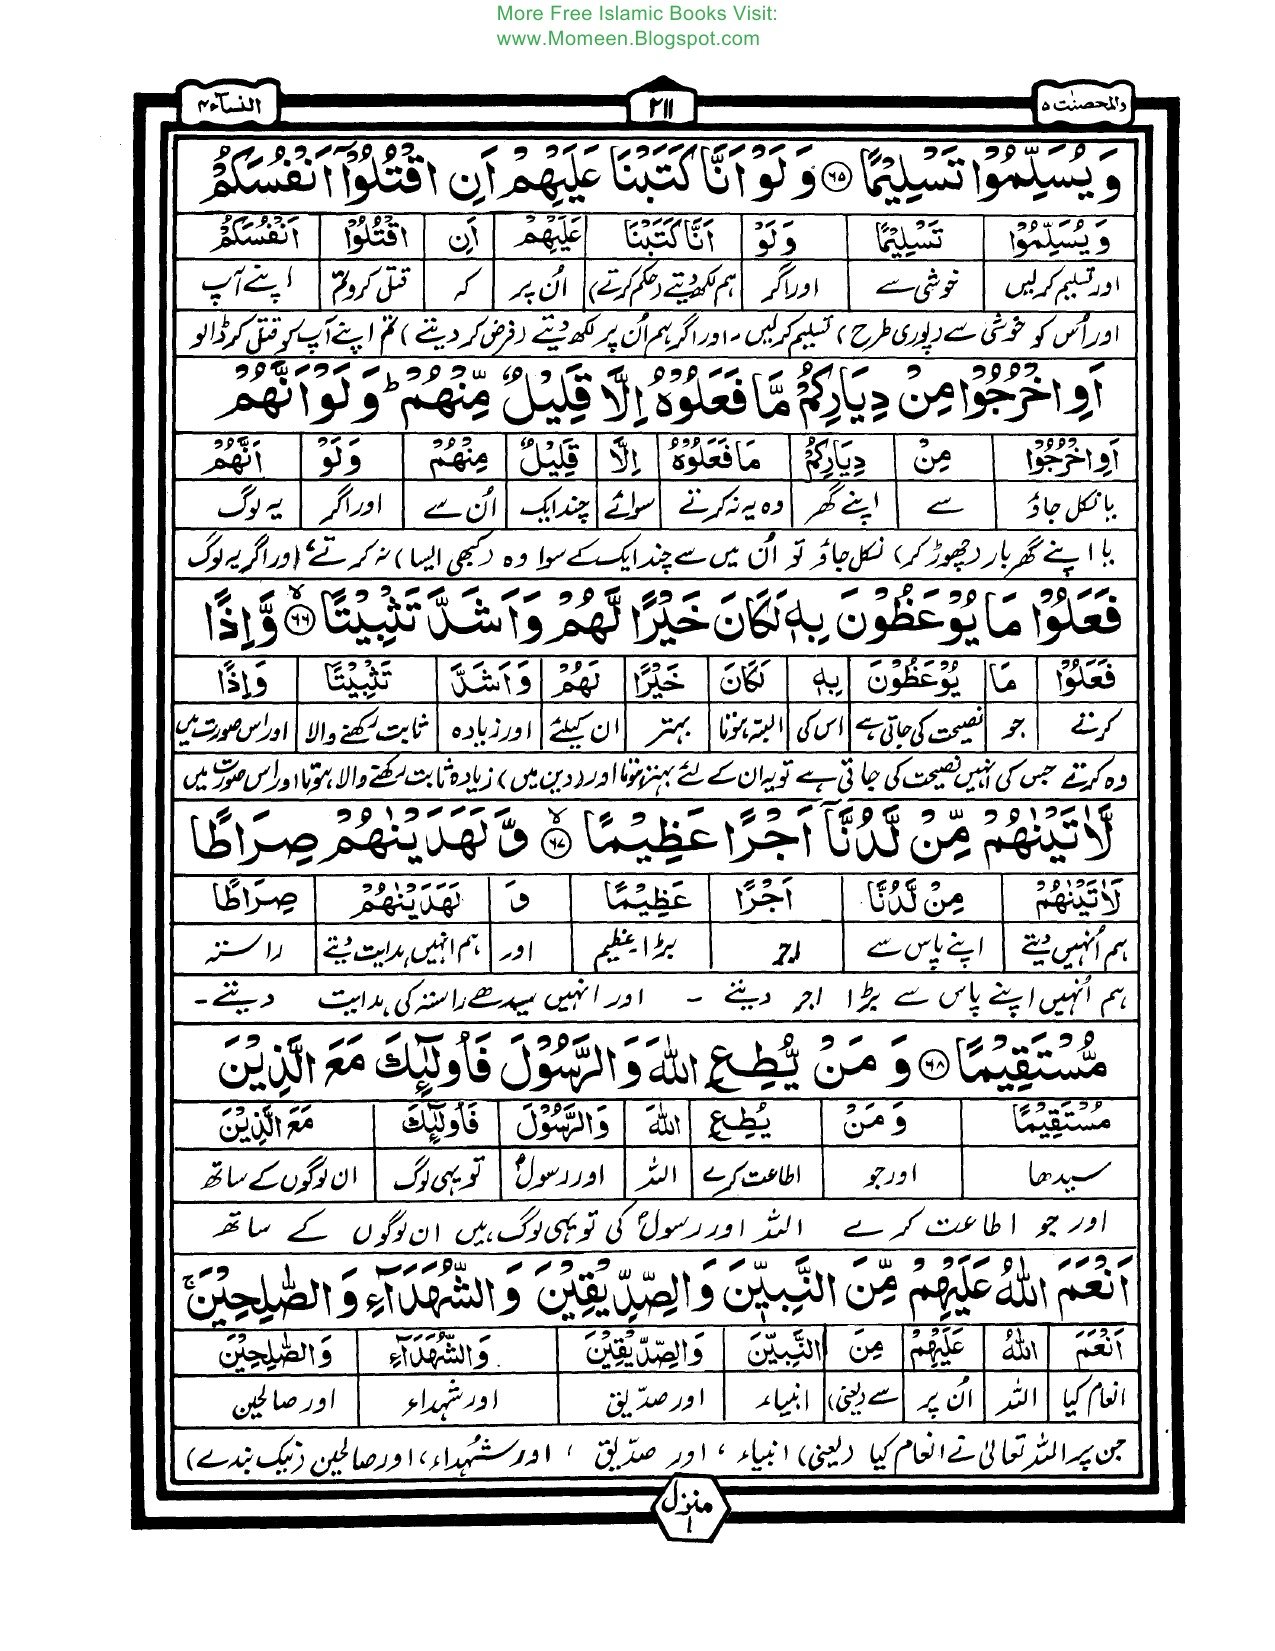 More Free Islamic Books Visit:
www.Momeen.Blogspot.com
والمحصنٰت ۵
۲۱۱
النسآء ۴
وَيُسَلِّمُوْا تَسْلِيْمًا ۶۵ وَلَوْ اَنَّا كَتَبْنَا عَلَيْهِمْ اَنِ اقْتُلُوْٓا اَنْفُسَكُمْ
وَيُسَلِّمُوْا تَسْلِيْمًا وَلَوْ اَنَّا كَتَبْنَا عَلَيْهِمْ اَنِ اقْتُلُوْٓا اَنْفُسَكُمْ
اور تسلیم کرلیں خوشی سے اور اگر ہم لکھ دیتے (حکم کرتے) اُن پر کہ قتل کرو تم اپنے آپ
اور اُس کو خوشی سے (پوری طرح) تسلیم کرلیں۔ اور اگر ہم اُن پر لکھ دیتے (فرض کر دیتے) تم اپنے آپ کو قتل کر ڈالو
اَوِ اخْرُجُوْا مِنْ دِيَارِكُمْ مَّا فَعَلُوْهُ اِلَّا قَلِيْلٌ مِّنْهُمْ ؕ وَلَوْ اَنَّهُمْ
اَوِ اخْرُجُوْا مِنْ دِيَارِكُمْ مَا فَعَلُوْهُ اِلَّا قَلِيْلٌ مِنْهُمْ وَلَوْ اَنَّهُمْ
یا نکل جاؤ سے اپنے گھر وہ یہ نہ کرتے سوائے چند ایک اُن سے اور اگر یہ لوگ
یا اپنے گھر بار (چھوڑ کر) نکل جاؤ تو اُن میں سے چند ایک کے سوا وہ (کبھی ایسا) نہ کرتے، اور اگر یہ لوگ
فَعَلُوْا مَا يُوْعَظُوْنَ بِهٖ لَكَانَ خَيْرًا لَّهُمْ وَاَشَدَّ تَثْبِيْتًا ۶۶ۙ وَّاِذًا
فَعَلُوْا مَا يُوْعَظُوْنَ بِهٖ لَكَانَ خَيْرًا لَهُمْ وَاَشَدَّ تَثْبِيْتًا وَاِذًا
کرتے جو نصیحت کی جاتی ہے اس کی البتہ ہوتا بہتر ان کیلئے اور زیادہ ثابت رکھنے والا اور اس صورت میں
وہ کرتے جس کی انہیں نصیحت کی جاتی ہے تو یہ ان کے لئے بہتر ہوتا اور (دین میں) زیادہ ثابت رکھنے والا ہوتا اور اس صورت میں
لَّاٰتَيْنٰهُمْ مِّنْ لَّدُنَّآ اَجْرًا عَظِيْمًا ۶۷ۙ وَّلَهَدَيْنٰهُمْ صِرَاطًا
لَاٰتَيْنٰهُمْ مِنْ لَّدُنَّا اَجْرًا عَظِيْمًا وَ لَهَدَيْنٰهُمْ صِرَاطًا
ہم اُنہیں دیتے اپنے پاس سے اجر بڑا عظیم اور ہم انہیں ہدایت دیتے راستہ
ہم اُنہیں اپنے پاس سے بڑا اجر دیتے ۔ اور انہیں سیدھے راستہ کی ہدایت دیتے ۔
مُّسْتَقِيْمًا ۶۸ وَمَنْ يُّطِعِ اللّٰهَ وَالرَّسُوْلَ فَاُولٰٓئِكَ مَعَ الَّذِيْنَ
مُسْتَقِيْمًا وَمَنْ يُطِعِ اللّٰهَ وَالرَّسُوْلَ فَاُولٰٓئِكَ مَعَ الَّذِيْنَ
سیدھا اور جو اطاعت کرے اللہ اور رسولؐ تو یہی لوگ ان لوگوں کے ساتھ
اور جو اطاعت کرے اللہ اور رسولؐ کی تو یہی لوگ ہیں ان لوگوں کے ساتھ
اَنْعَمَ اللّٰهُ عَلَيْهِمْ مِّنَ النَّبِيّٖنَ وَالصِّدِّيْقِيْنَ وَالشُّهَدَآءِ وَالصّٰلِحِيْنَ ۚ
اَنْعَمَ اللّٰهُ عَلَيْهِمْ مِنَ النَّبِيّٖنَ وَالصِّدِّيْقِيْنَ وَالشُّهَدَآءِ وَالصّٰلِحِيْنَ
انعام کیا اللہ اُن پر سے (یعنی) انبیاء اور صدّیق اور شہداء اور صالحین
جن پر اللہ تعالیٰ نے انعام کیا (یعنی) انبیاء ، اور صدّیق ، اور شہداء، اور صالحین (نیک بندے)
منزل
۱